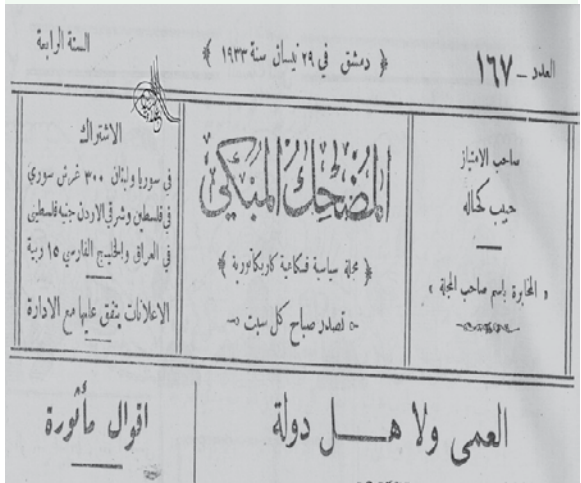 العدد – ١٦٧
﴿ دمشق في ٢٩ نيسان سنة ١٩٣٣ ﴾
السنة الرابعة
صاحب الامتياز
حبيب كحاله
« المخابرة باسم صاحب المجلة »
المُضحِكُ المُبكي
﴿ مجلة سياسية فكاهية كاريكاتورية ﴾
تصدر صباح كل سبت
الاشتراك
في سوريا ولبنان ٣٠٠ غرش سوري
في فلسطين وشرقي الاردن جنيه فلسطيني
في العراق والخليج الفارسي ١٥ ربية
الاعلانات يتفق عليها مع الادارة
العمى ولا هــل دولة
اقوال مأثورة